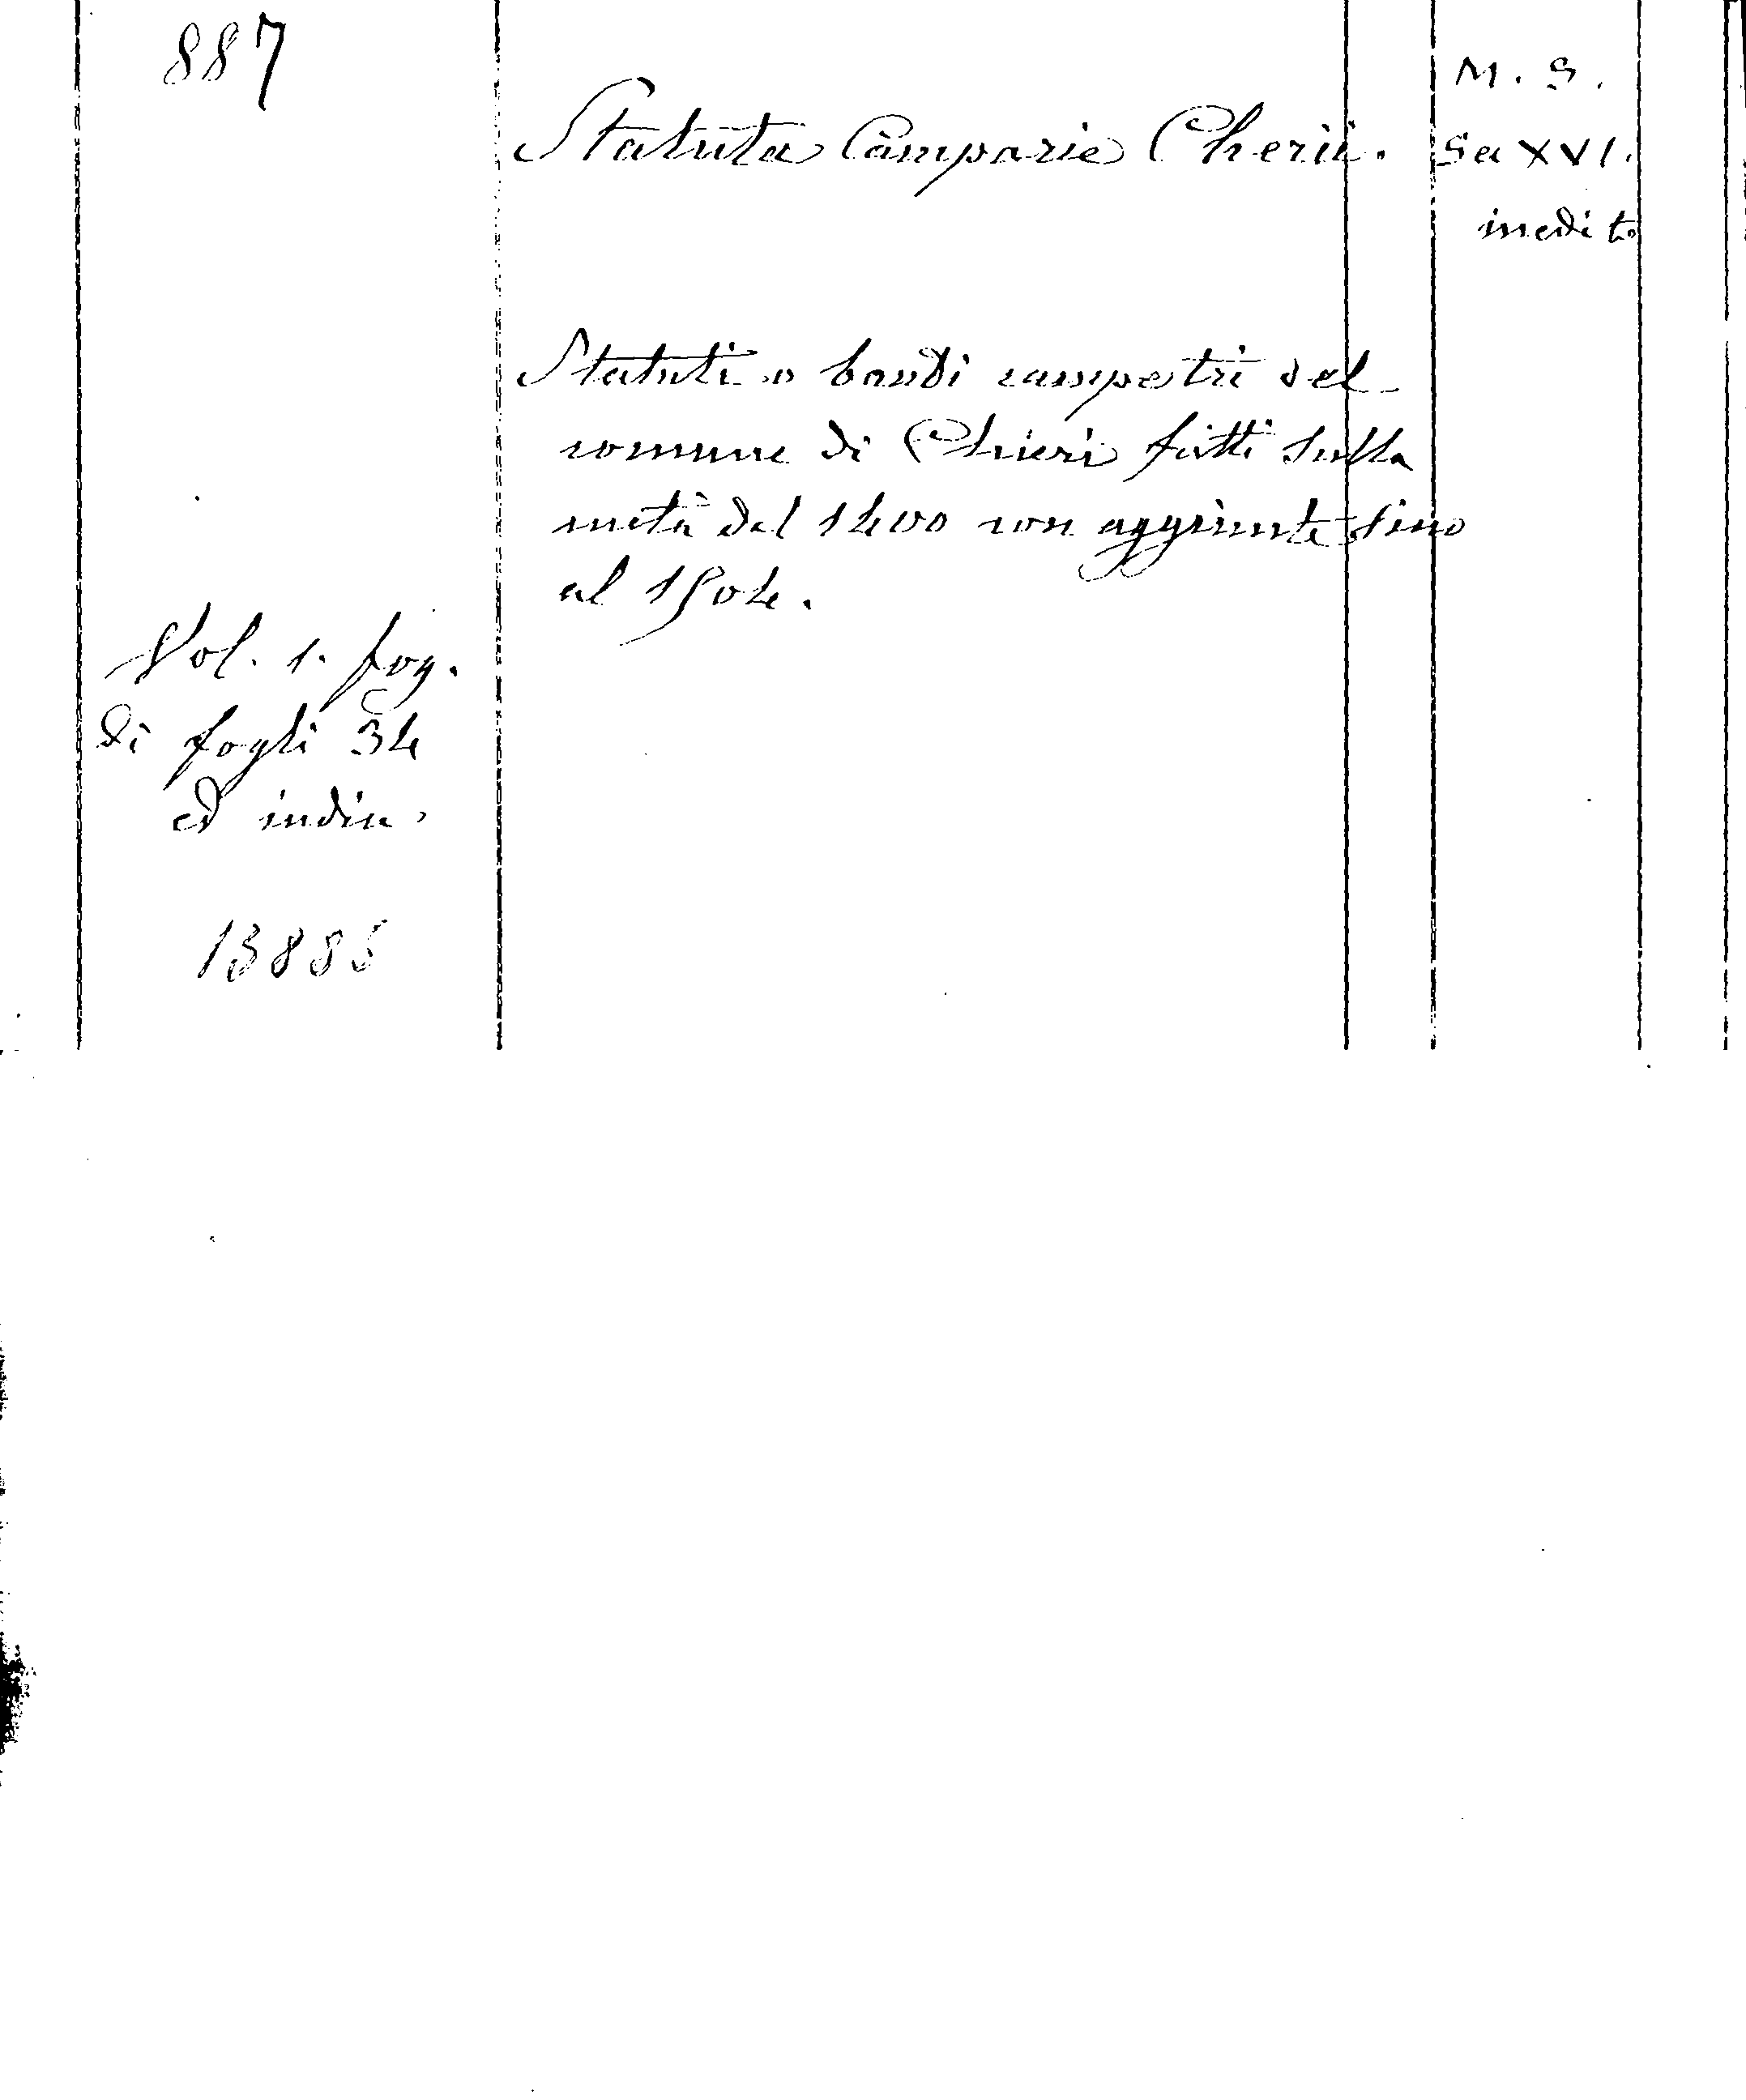 887
Statuta Camparie Cherii.
M. S.
Sec XVI.
inedito
Statuti o bandi campestri del
comune di Chieri fatti sulla
metà del 1400 con aggiunte sino
al 1504.
Vol. 1. fog.
di fogli 34
ed indice.
13885